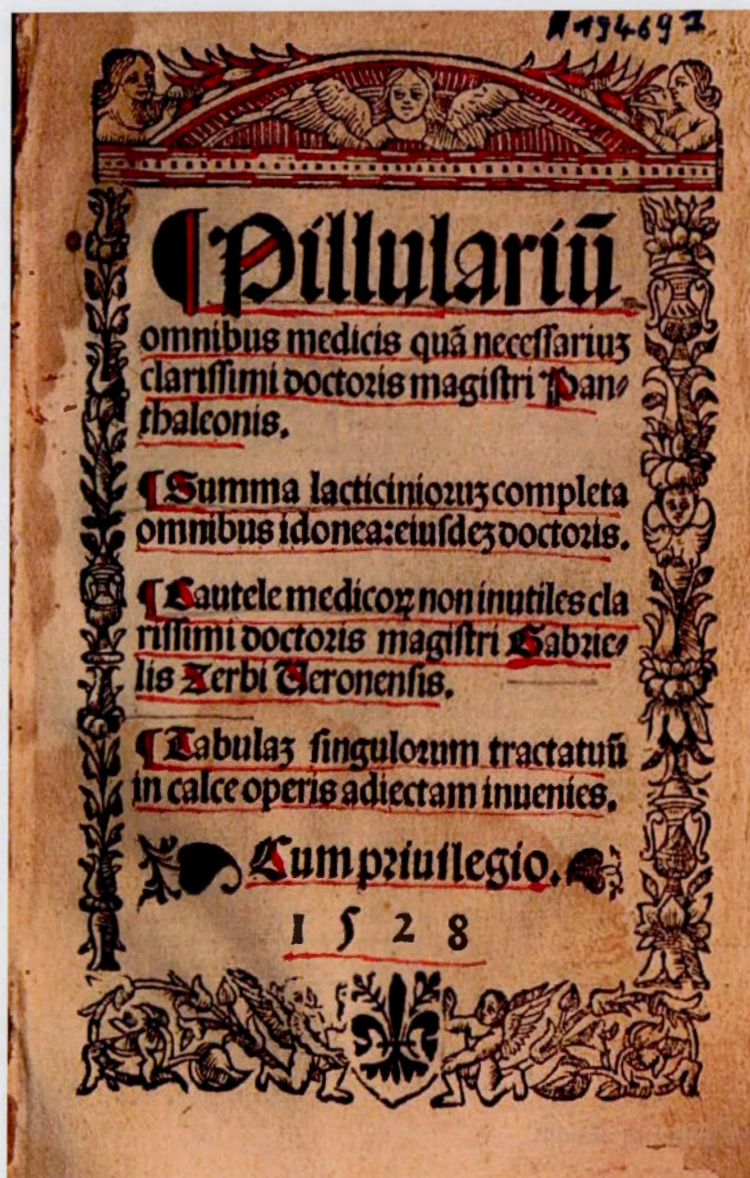 A 194691
¶Pillulariū
omnibus medicis quā necessariuꝫ
clarissimi doctoris magistri Pan⸗
thaleonis.
¶Summa lacticinioruꝫ completa
omnibus idonea:eiusdeꝫ doctoris.
¶Cautele medicoꝝ non inutiles cla
rissimi doctoris magistri Gabrie⸗
lis Zerbi Ueronensis.
¶Tabulaꝫ singulorum tractatuū
in calce operis adiectam inuenies.
Cum priuilegio.
1528